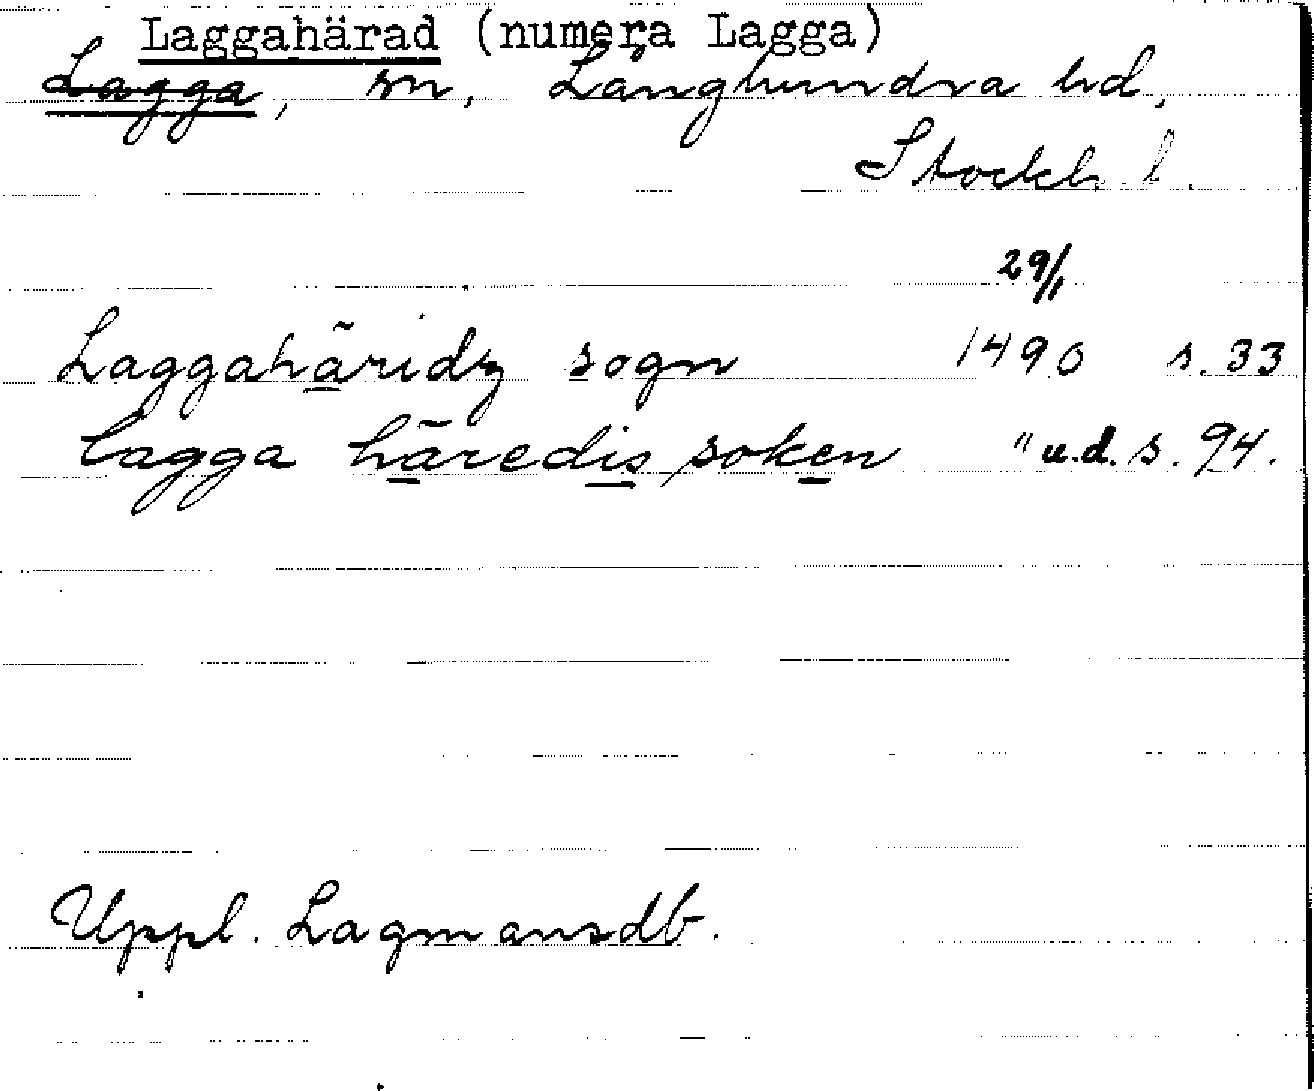 Laggahärad (numera Lagga)
Lagga, sn, Långhundra hd,
Stockh. l.
29/1
Laggahäridz sogn 1490 s. 33
lagga häredis soken " u.d. s. 94.
Uppl. Lagmansdb.